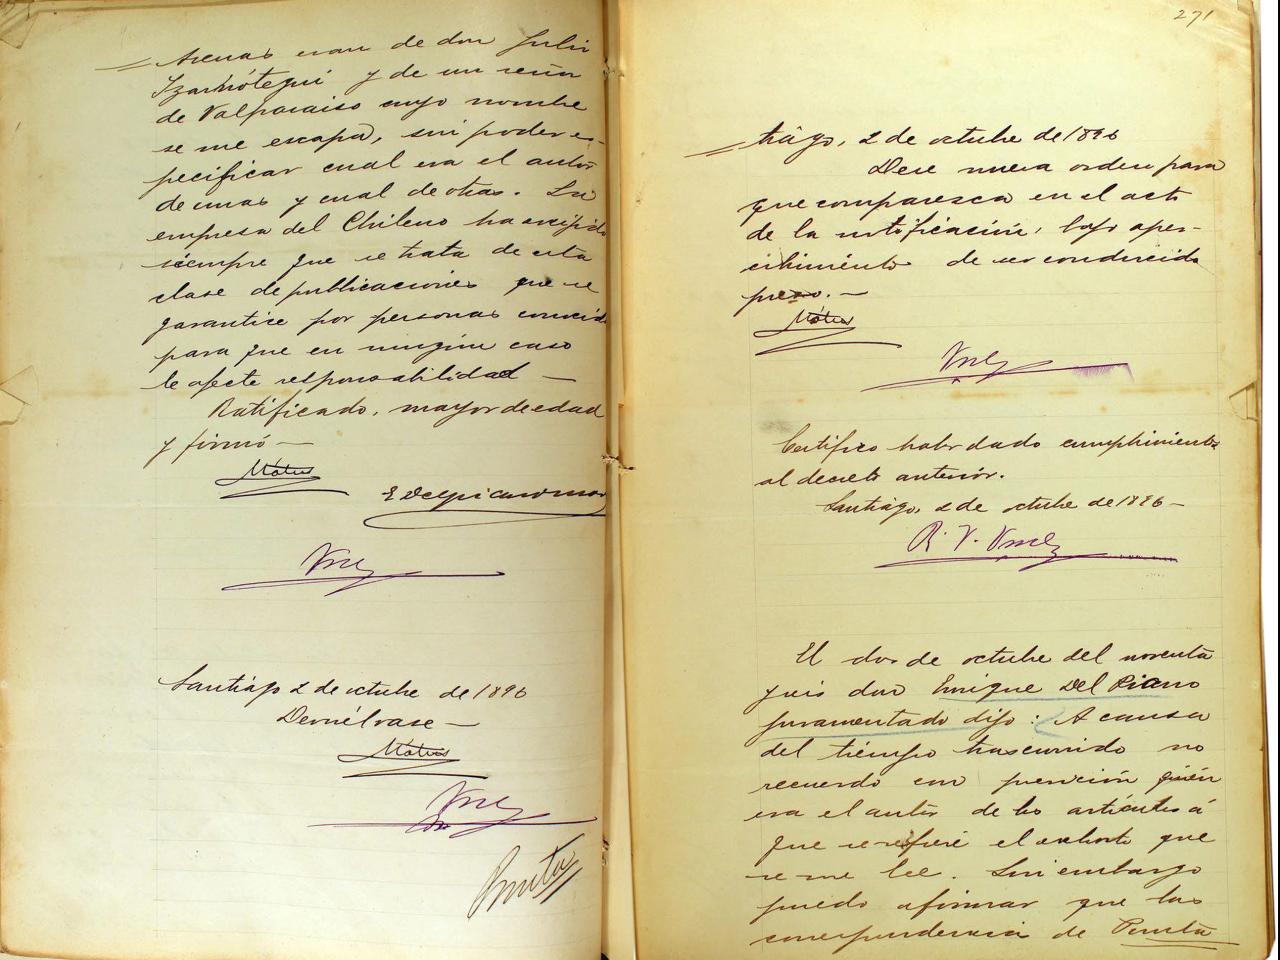 Arenas eran de don Julio
Izarnótegui y de un señor
de Valparaiso cuyo nombre
se me escapa, sin poder es-
pecificar cual era el autor
de unas y cual de otras. La
empresa del Chileno ha exijido
siempre que se trata de esta
clase de publicaciones que se
garantice por personas conocid
para que en ningún caso
le afecte responsabilidad —
Ratificado, mayor de edad
y firmó —
Santiago 2 de octubre de 1896
Devuélvase —
Punta
271
tiago, 2 de octubre de 1896
Dese nueva orden para
que comparesca en el acto
de la notificación, bajo aper-
cibimiento de ser conducido
preso. —
Certifico haber dado cumplimiento
al decreto anterior.
Santiago, 2 de octubre de 1896 —
El dos de octubre del noventa
y seis don Enrique Del Piano
juramentado dijo: A causa
del tiempo trascurrido no
recuerdo con precición quién
era el autor de los artículos á
que se refiere el exhorto que
se me lee. Sin embargo
puedo afirmar que las
correspondencia de Punta